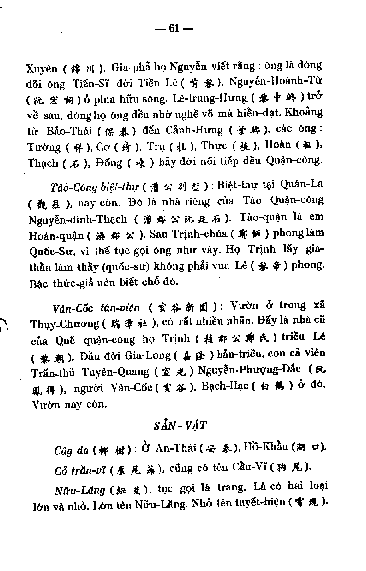 — 61 —
Xuyên (錦川). Gia-phả họ Nguyễn viết rằng : ông là dòng
dõi ông Tiến-Sĩ đời Tiền Lê (前黎). Nguyễn-Hoành-Từ
(阮宏詞) ở phía hữu sông. Lê-trung-Hưng (黎中興) trở
về sau, dòng họ ông đều nhờ nghề võ mà hiển-đạt. Khoảng
từ Bảo-Thái (保泰) đến Cảnh-Hưng (景興), các ông :
Tường (祥), Cơ, Trụ, Thực, Hoàn (桓),
Thạch (石), Đống (棟) bảy đời nối tiếp đều Quận-công.
Tào-Công biệt-thự : Biệt-thự tại Quán-La
, nay còn. Đó là nhà riêng của Tào Quận-công
Nguyễn-đình-Thạch. Tào-quận là em
Hoán-quận. Sau Trịnh-chúa phong làm
Quốc-Sư, vì thế tục gọi ông như vậy. Họ Trịnh lấy gia-
thần làm thầy (quốc-sư) không phải vua Lê (黎帝) phong.
Bậc thức-giả nên biết chỗ đó.
Vân-Cốc tân-viên (雲谷新園) : Vườn ở trong xã
Thụy-Chương (瑞章社), có rất nhiều nhãn. Đấy là nhà cũ
của Quế quận-công họ Trịnh (桂郡公鄭氏) triều Lê
(黎朝). Đầu đời Gia-Long (嘉隆) bản-triều, con cả viên
Trấn-thủ Tuyên-Quang (宣光) Nguyễn-Phượng-Đắc (阮
鳳得), người Vân-Cốc (雲谷), Bạch-Hạc (白鶴) ở đó.
Vườn nay còn.
SẢN-VẬT
Cây da (椰樹) : Ở An-Thái (安泰), Hồ-Khẩu (湖口).
Cỏ trần-vĩ, cũng có tên Cẩu-Vĩ (狗尾).
Nữu-Lăng, tục gọi là trang. Lá có hai loại
lớn và nhỏ. Lớn tên Nữu-Lăng. Nhỏ tên tuyết-hiện (雪現).